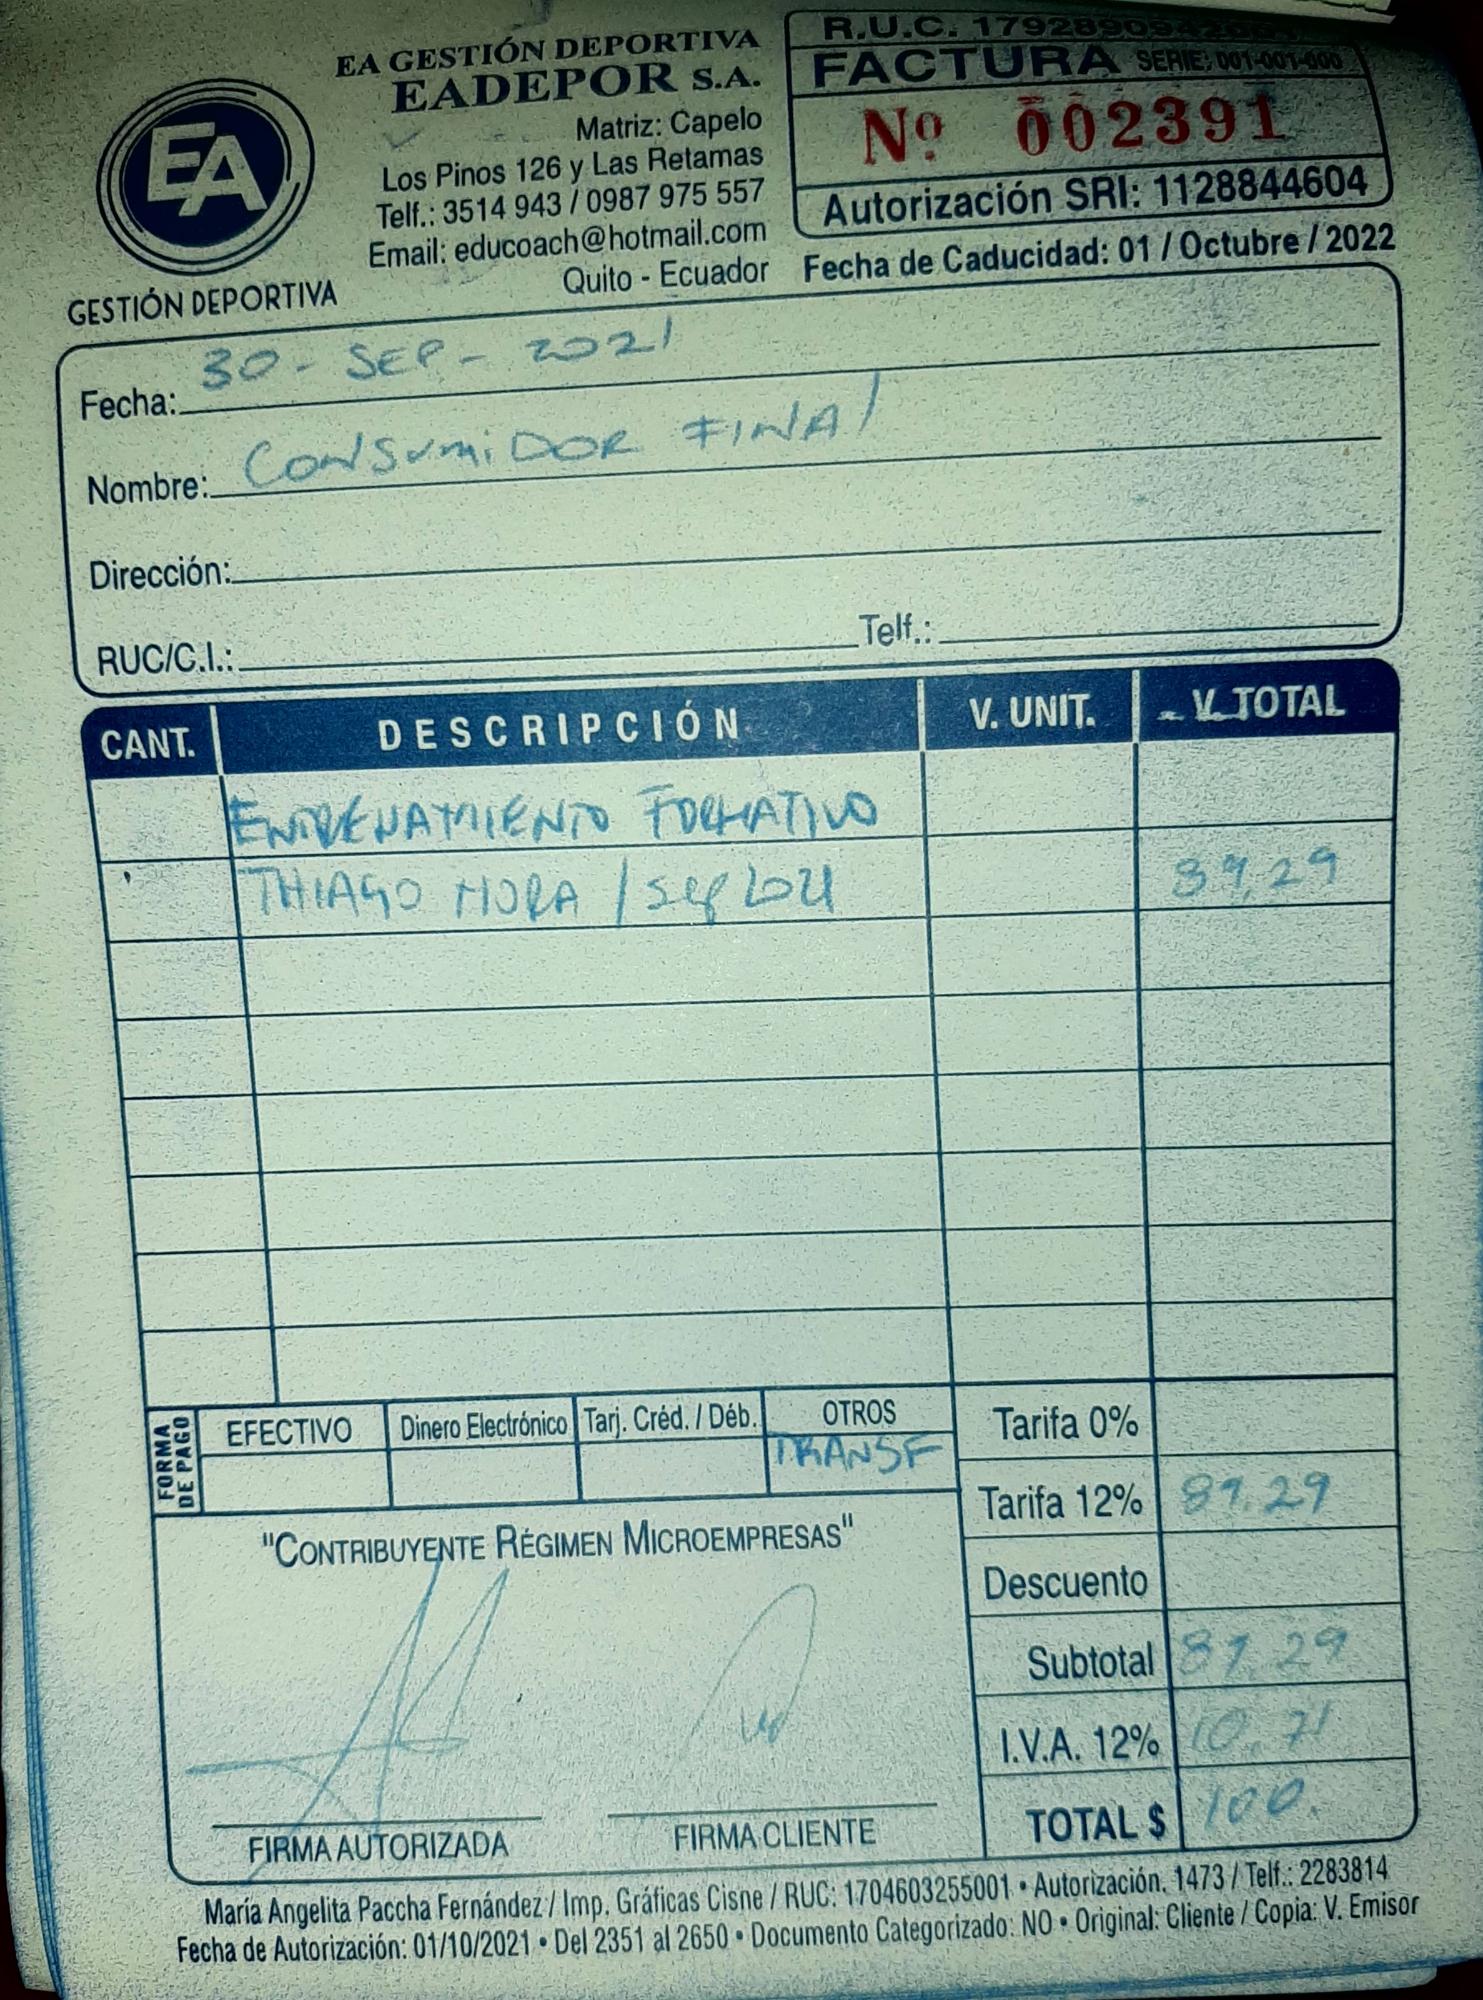 EA GESTIÓN DEPORTIVA
EADEPOR S.A.
Matriz: Capelo
Los Pinos 126 y Las Retamas
Telf.: 3514 943 / 0987 975 557
Email: educoach@hotmail.com
Quito - Ecuador
EA
GESTIÓN DEPORTIVA
R.U.C.
FACTURA SERIE: 001-001-000
Nº 002391
Autorización SRI: 1128844604
Fecha de Caducidad: 01 / Octubre / 2022
Fecha: 30 - SEP - 2021
Nombre: CONSUMIDOR FINAL
Dirección:
RUC/C.I.: Telf.:
CANT. DESCRIPCIÓN V. UNIT. V. TOTAL
ENTRENAMIENTO FORMATIVO
THIAGO MORA / Sep 89,29
FORMA DE PAGO EFECTIVO Dinero Electrónico Tarj. Créd. / Déb. OTROS
TRANSF
Tarifa 0%
Tarifa 12% 89.29
Descuento
Subtotal 89.29
I.V.A. 12% 10.71
TOTAL $ 100.
"CONTRIBUYENTE RÉGIMEN MICROEMPRESAS"
FIRMA AUTORIZADA FIRMA CLIENTE
María Angelita Paccha Fernández / Imp. Gráficas Cisne / RUC: 1704603255001 • Autorización. 1473 / Telf.: 2283814
Fecha de Autorización: 01/10/2021 • Del 2351 al 2650 • Documento Categorizado: NO • Original: Cliente / Copia: V. Emisor